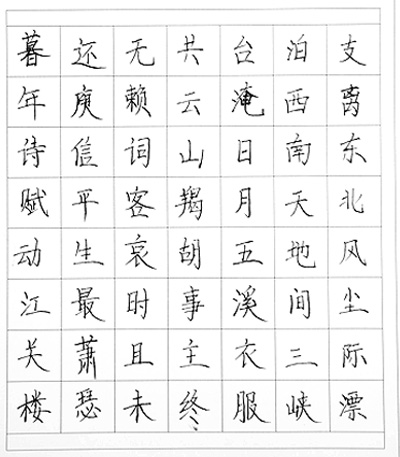 支离东北风尘际漂
泊西南天地间三峡
台淹日月五溪衣服
共云山羯胡事主终
无赖词客哀时且未
还庾信平生最萧瑟
暮年诗赋动江关楼